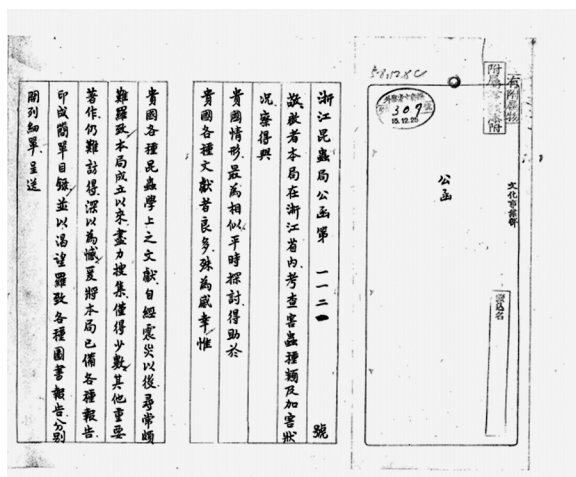 有附屬物
附屬
附
文化事業部
公函
309
15.12.25
浙江昆蟲局公函第一一二一號
敬啟者本局在浙江省内考查害蟲種類及加害狀
况察得與
貴國情形最為相似平時探討得助於
貴國各種文獻者良多殊為感幸惟
貴國各種昆蟲學上之文獻自經震災以後尋常頗
難羅致本局成立以來盡力搜集僅得少數其他重要
著作仍難訪得深以為憾爰將本局已備各種報告
印成簡單目錄並以渴望羅致各種圖書報告分別
開列細單呈送